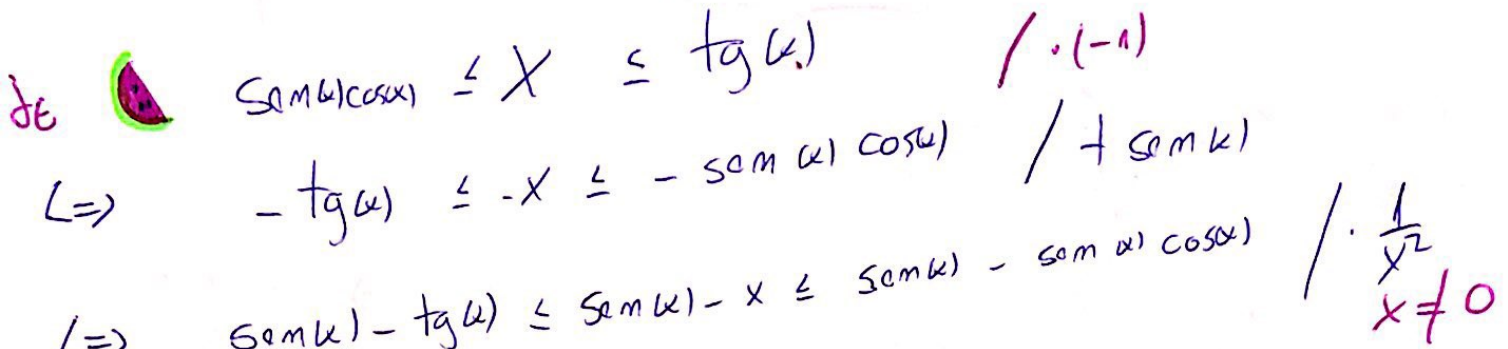 de 🍉 sen(x)cos(x) ≤ X ≤ tg(x) / ·(-1)
<=> - tg(x) ≤ -X ≤ - sen(x) cos(x) / + sen(x)
<=> sen(x) - tg(x) ≤ sen(x) - x ≤ sen(x) - sen(x) cos(x) / · 1/x² x≠0